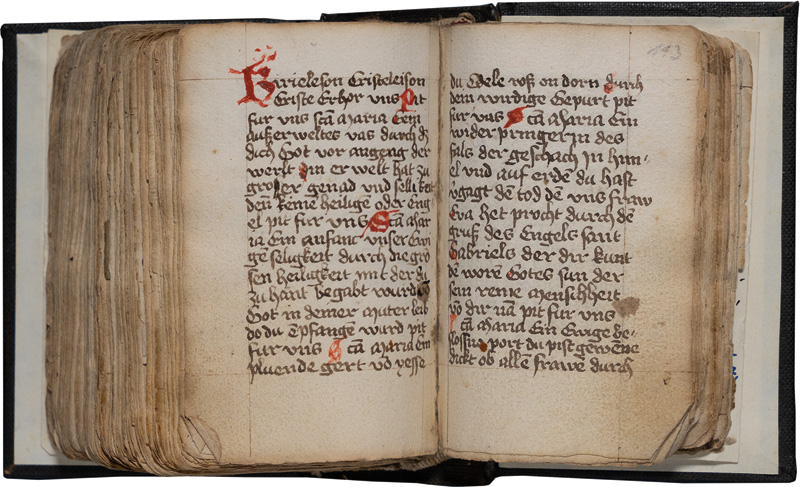 Kyrieleson Cristeleison
Criste Erhor vns Pit
fur vns Scā Maria Ein
außerweltes vas durch dz
dich Got vor angeng der
werlt Din er welt hat zu
groser genad vnd selikeit
den keine heiligen oder Eng
el pit fur vns Scā Mar
ia Ein anfanc vnser Ewi
gē seligkeit durch die gro
sen heiligkeit mit der du
zu hant begabt wurd vō
Got in deiner muter leib
do du Epfangē wurd pit
fur vns Scā Maria ein
pluende gert vō yesse
113
du Edele roß on dorn durch
dein wirdige Gepurt pit
fur vns Scā Maria Ein
widerpringerin des
fals der geschach In him
el vnd auf erdē du hast
vgagt dē tod dē vns fraw
Eva het procht durch dē
gruß des Engels sant
Gabriels der dir kunt
dē worē Gotes sun der
sein reine menschheit
vō dir nā pit fur vns
Scā Maria Ein Ewige be
slossne port du pist gewēne
dickt ob allē frawē durch